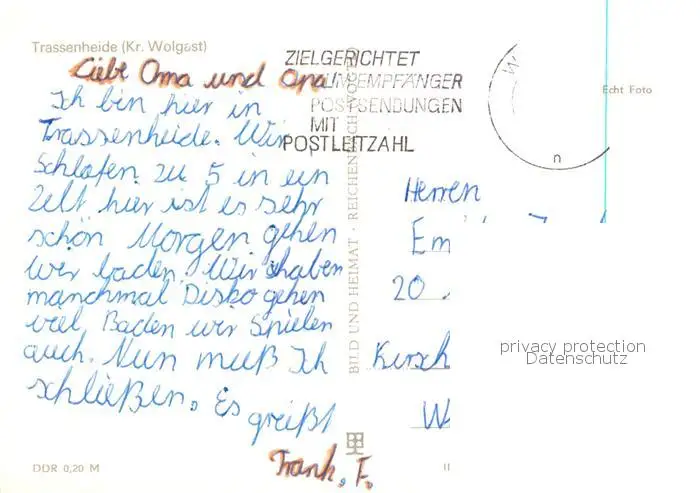 Trassenheide (Kr. Wolgast)
Liebe Oma und Opa
Ich bin hier in
Trassenheide. Wir
Schlafen zu 5 in ein
Zelt hier ist es sehr
schön Morgen gehen
wir baden. Wir haben
manchmal Disko gehen
viel Baden wir Spielen
auch. Nun muß Ich
schließen. Es
greißt
Frank. F.
DDR 0,20 M
ZIELGERICHTET
ZUM EMPFÄNGER
POSTSENDUNGEN
MIT
POSTLEITZAHL
BILD UND HEIMAT · REICHENBACH (VOGTL)
Echt Foto
n
Herren
Em
20
Kirsch
W
II
privacy protection
Datenschutz